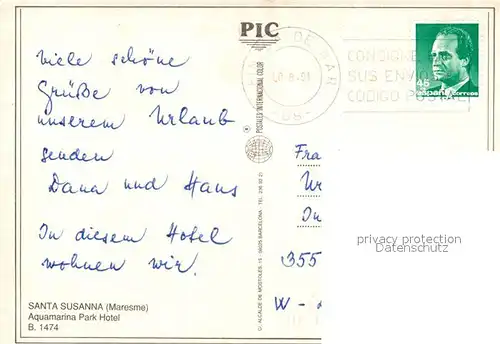 PIC
DE MAR
CONSIGNE
SUS ENVIO
CODIGO POSTAL
-8-91
08-
45
españa correos
viele schöne
Grüße von
unserem Urlaub
senden
Dana und Hans
In diesem Hotel
wohnen wir.
SANTA SUSANNA (Maresme)
Aquamarina Park Hotel
B. 1474
POSTALES INTERNACIONAL COLOR
C/. ALCALDE DE MOSTOLES, 15 - 08025 BARCELONA - TEL. 236 50 21
Fra
Ur
In
355
W -
privacy protection
Datenschutz